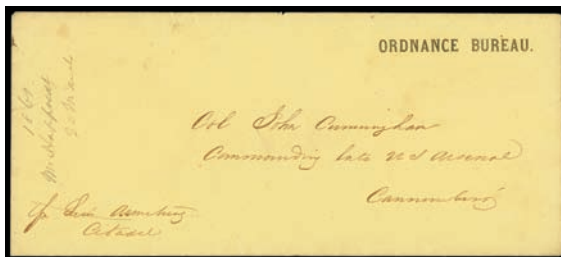 ORDNANCE BUREAU.
Col John Cunningham
Commanding late U S Arsenal
Cannonsboro'
Armstrong
Citadel
1861